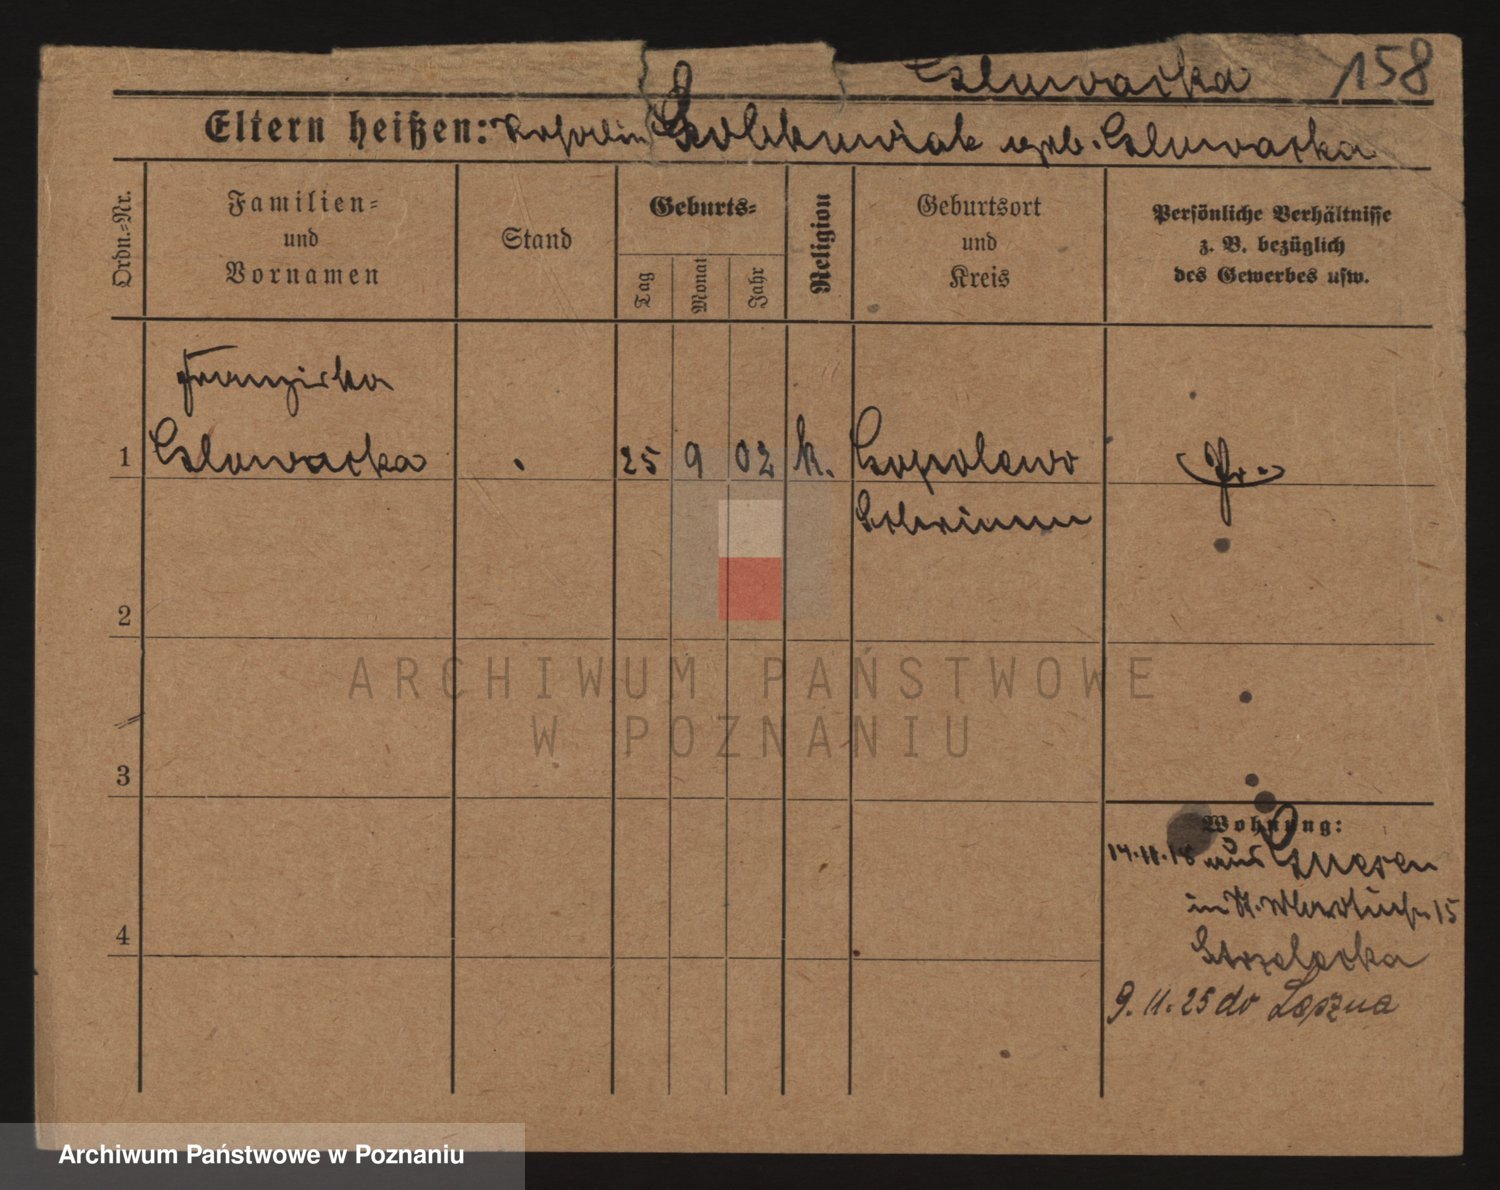 Czlowacka 158
Eltern heißen: geb. Czlowacka
Ordn.-Nr.
Familien-
und
Vornamen
Stand
Geburts-
Tag
Monat
Jahr
Religion
Geburtsort
und
Kreis
Persönliche Verhältnisse
z. B. bezüglich
des Gewerbes usw.
Franziska
1 Czlowacka 25 9 02 k.
Pr.
2
3
4
Wohnung:
14.11.18 aus Gnesen
in St. 15
Strzelecka
9.11.25 do Leszna
ARCHIWUM PAŃSTWOWE
W POZNANIU
Archiwum Państwowe w Poznaniu